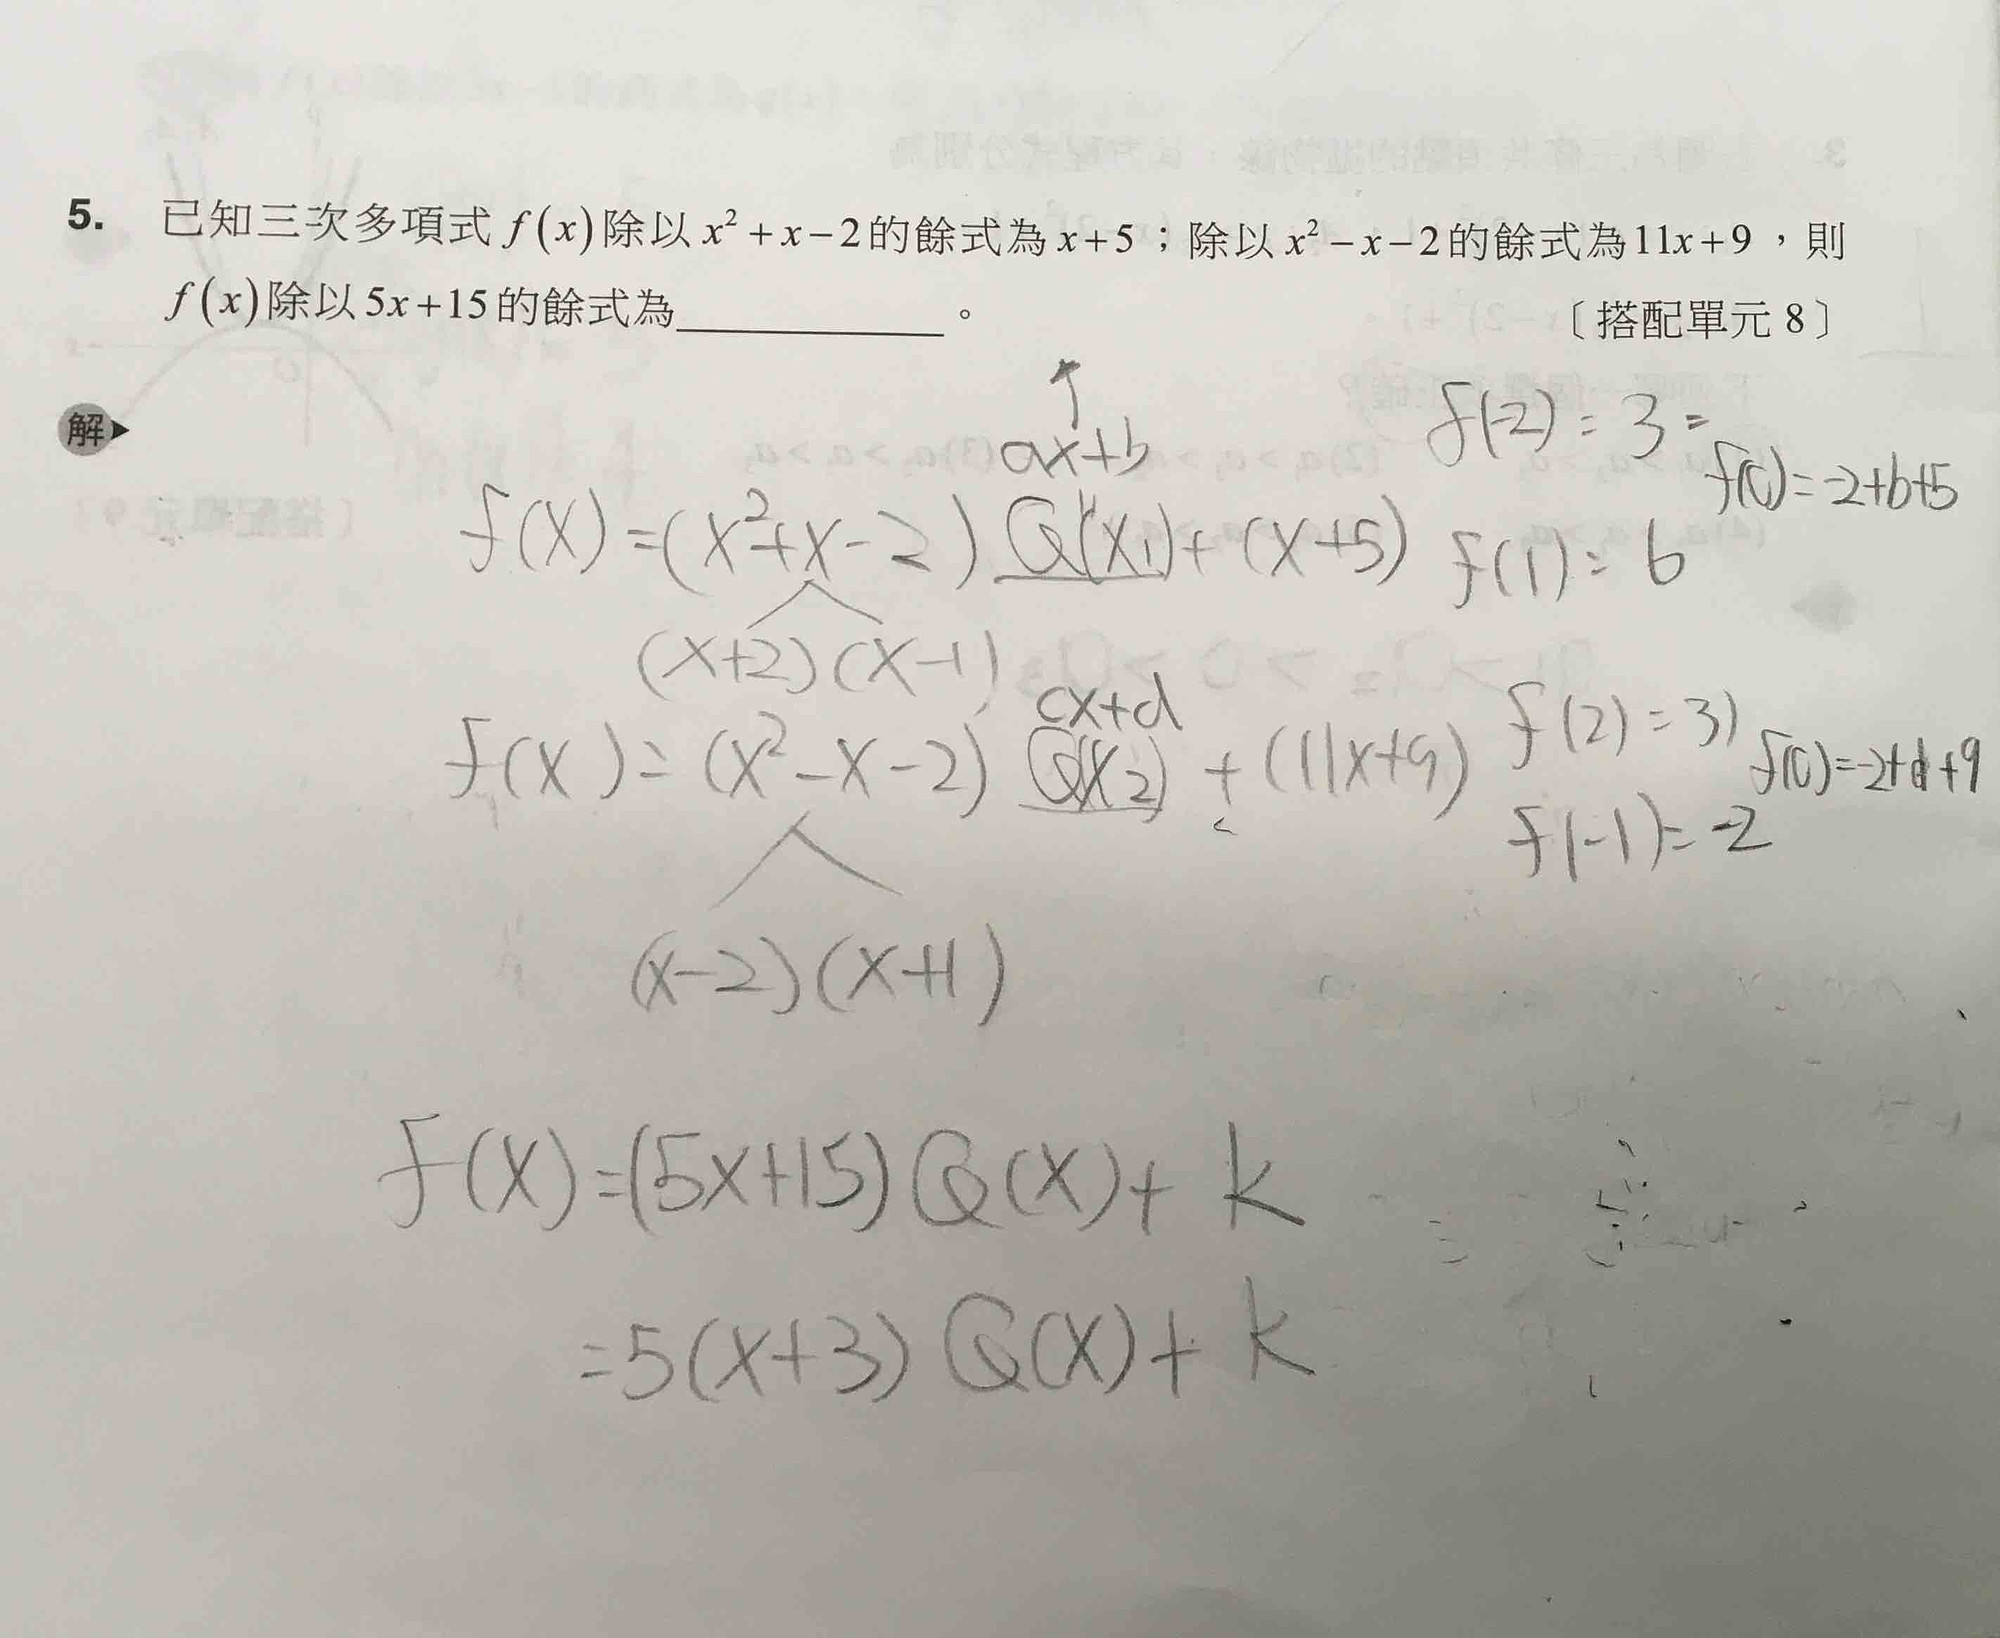 5. 已知三次多項式 f(x) 除以 x²+x−2 的餘式為 x+5；除以 x²−x−2 的餘式為 11x+9，則
f(x) 除以 5x+15 的餘式為＿＿＿＿＿＿。 〔搭配單元 8〕
解
↑
ax+b
f(-2)=3=
f(0)=-2+b+5
f(x)=(x²+x-2) Q(x₁)+(x+5)
f(1)=6
(x+2)(x-1)
cx+d
f(x)=(x²-x-2) Q(x₂)+(11x+9)
f(2)=31
f(0)=-2+d+9
f(-1)=-2
(x-2)(x+1)
f(x)=(5x+15)Q(x)+k
=5(x+3)Q(x)+k